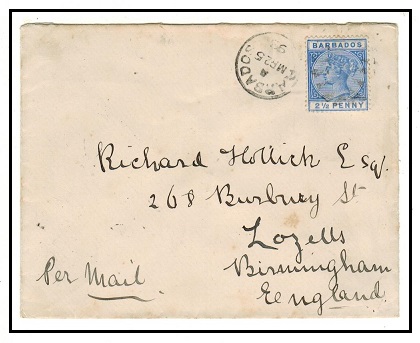 BARBADOS
2½ PENNY
BARBADOS
A
MR 25
90
Richard Hollick Esq.
268 Burbury St
Lozells
Birmingham
England
Per Mail